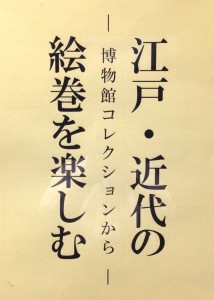 江戸・近代の
絵巻を楽しむ
―博物館コレクションから―